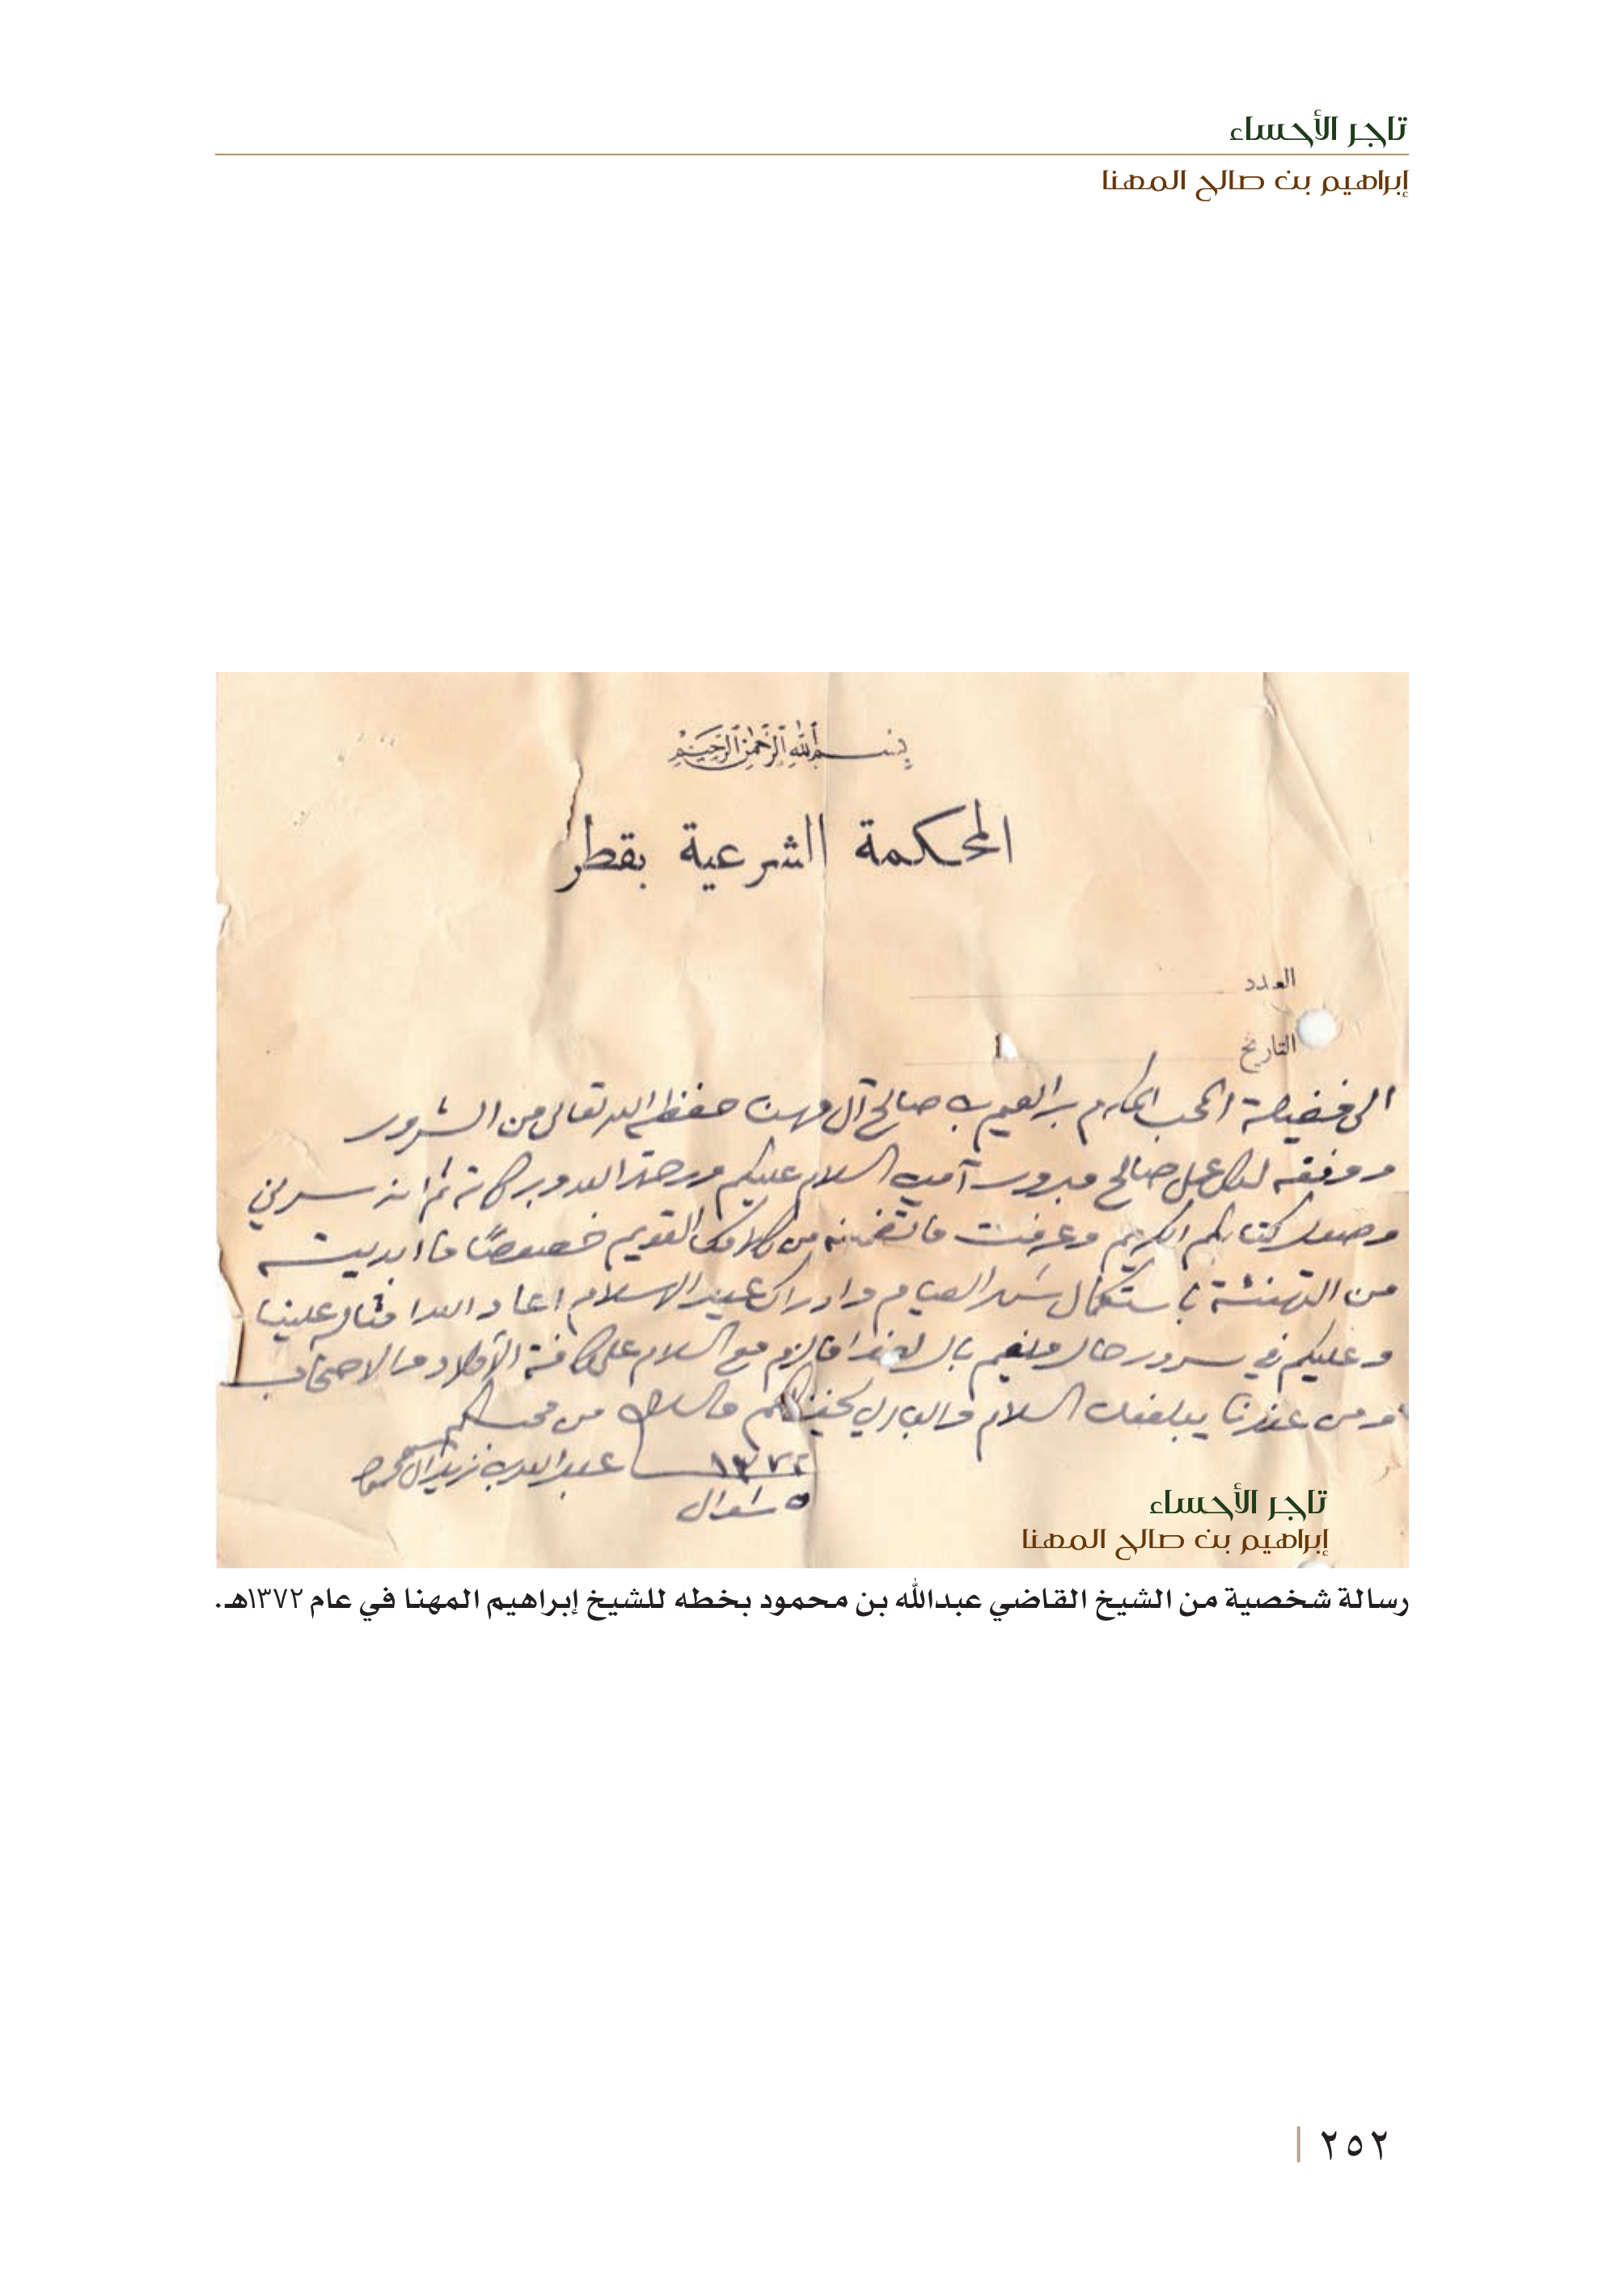 تاجر الأحساء
إبراهيم بن صالح المهنا
بسم الله الرحمن الرحيم
المحكمة الشرعية بقطر
العدد
التاريخ
الى فضيلة المحب المكرم ابراهيم بن صالح آل مهنا حفظه الله تعالى من الشرور
ووفقه لكل عمل صالح مبرور آمين السلام عليكم ورحمة الله وبركاته ثم انه سرني
وصول كتابكم الكريم وعرفت ما تضمنه من كلامك القويم خصوصًا ما ابديته
من التهنئة باستكمال شهر الصيام وادراك عيد الاسلام اعاد الله امثاله علينا
وعليكم في سرور حال ونعيم بال هذا ما لزم مع السلام على كافة الأولاد والاصحاب
ومن عندنا يبلغك السلام والباري يحفظكم والسلام من محبكم
١٣٧٢ عبدالله بن زيد آل محمود
٥ شوال
تاجر الأحساء
إبراهيم بن صالح المهنا
رسالة شخصية من الشيخ القاضي عبدالله بن محمود بخطه للشيخ إبراهيم المهنا في عام ١٣٧٢هـ.
٢٥٢